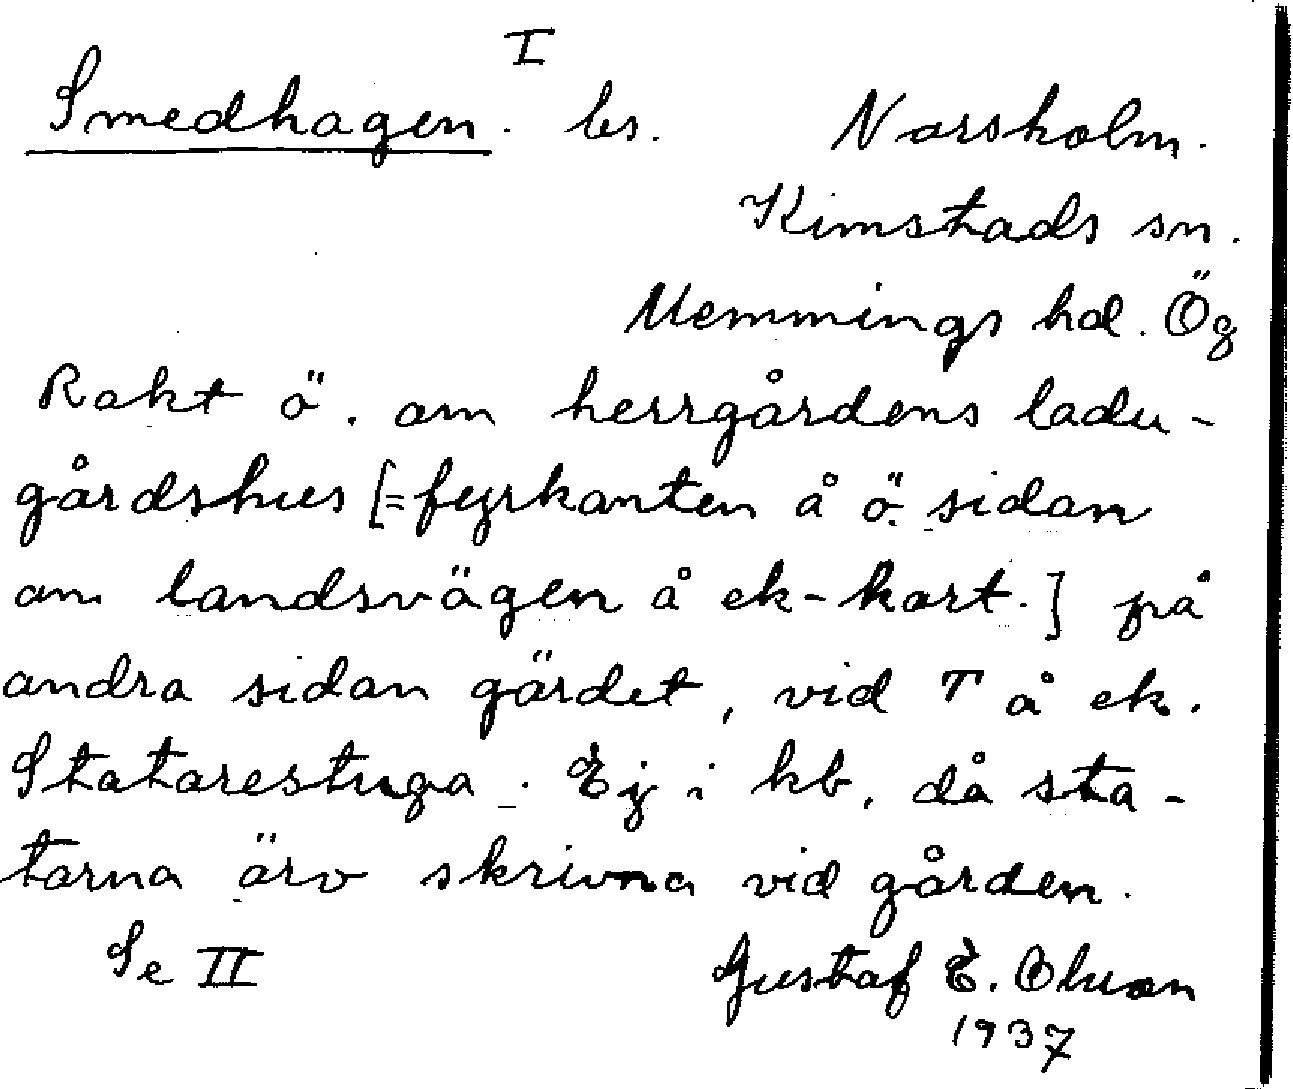 I
Smedhagen. ls. Norsholm.
Kimstads sn.
Memmings hd. Ög
Rakt ö. om herrgårdens ladu-
gårdshus [=fyrkanten å ö. sidan
om landsvägen å ek-kart.] på
andra sidan gärdet, vid T å ek.
Statarestuga. Ej i kb, då sta-
tarna äro skrivna vid gården.
Se II Gustaf E. Olsson
1937